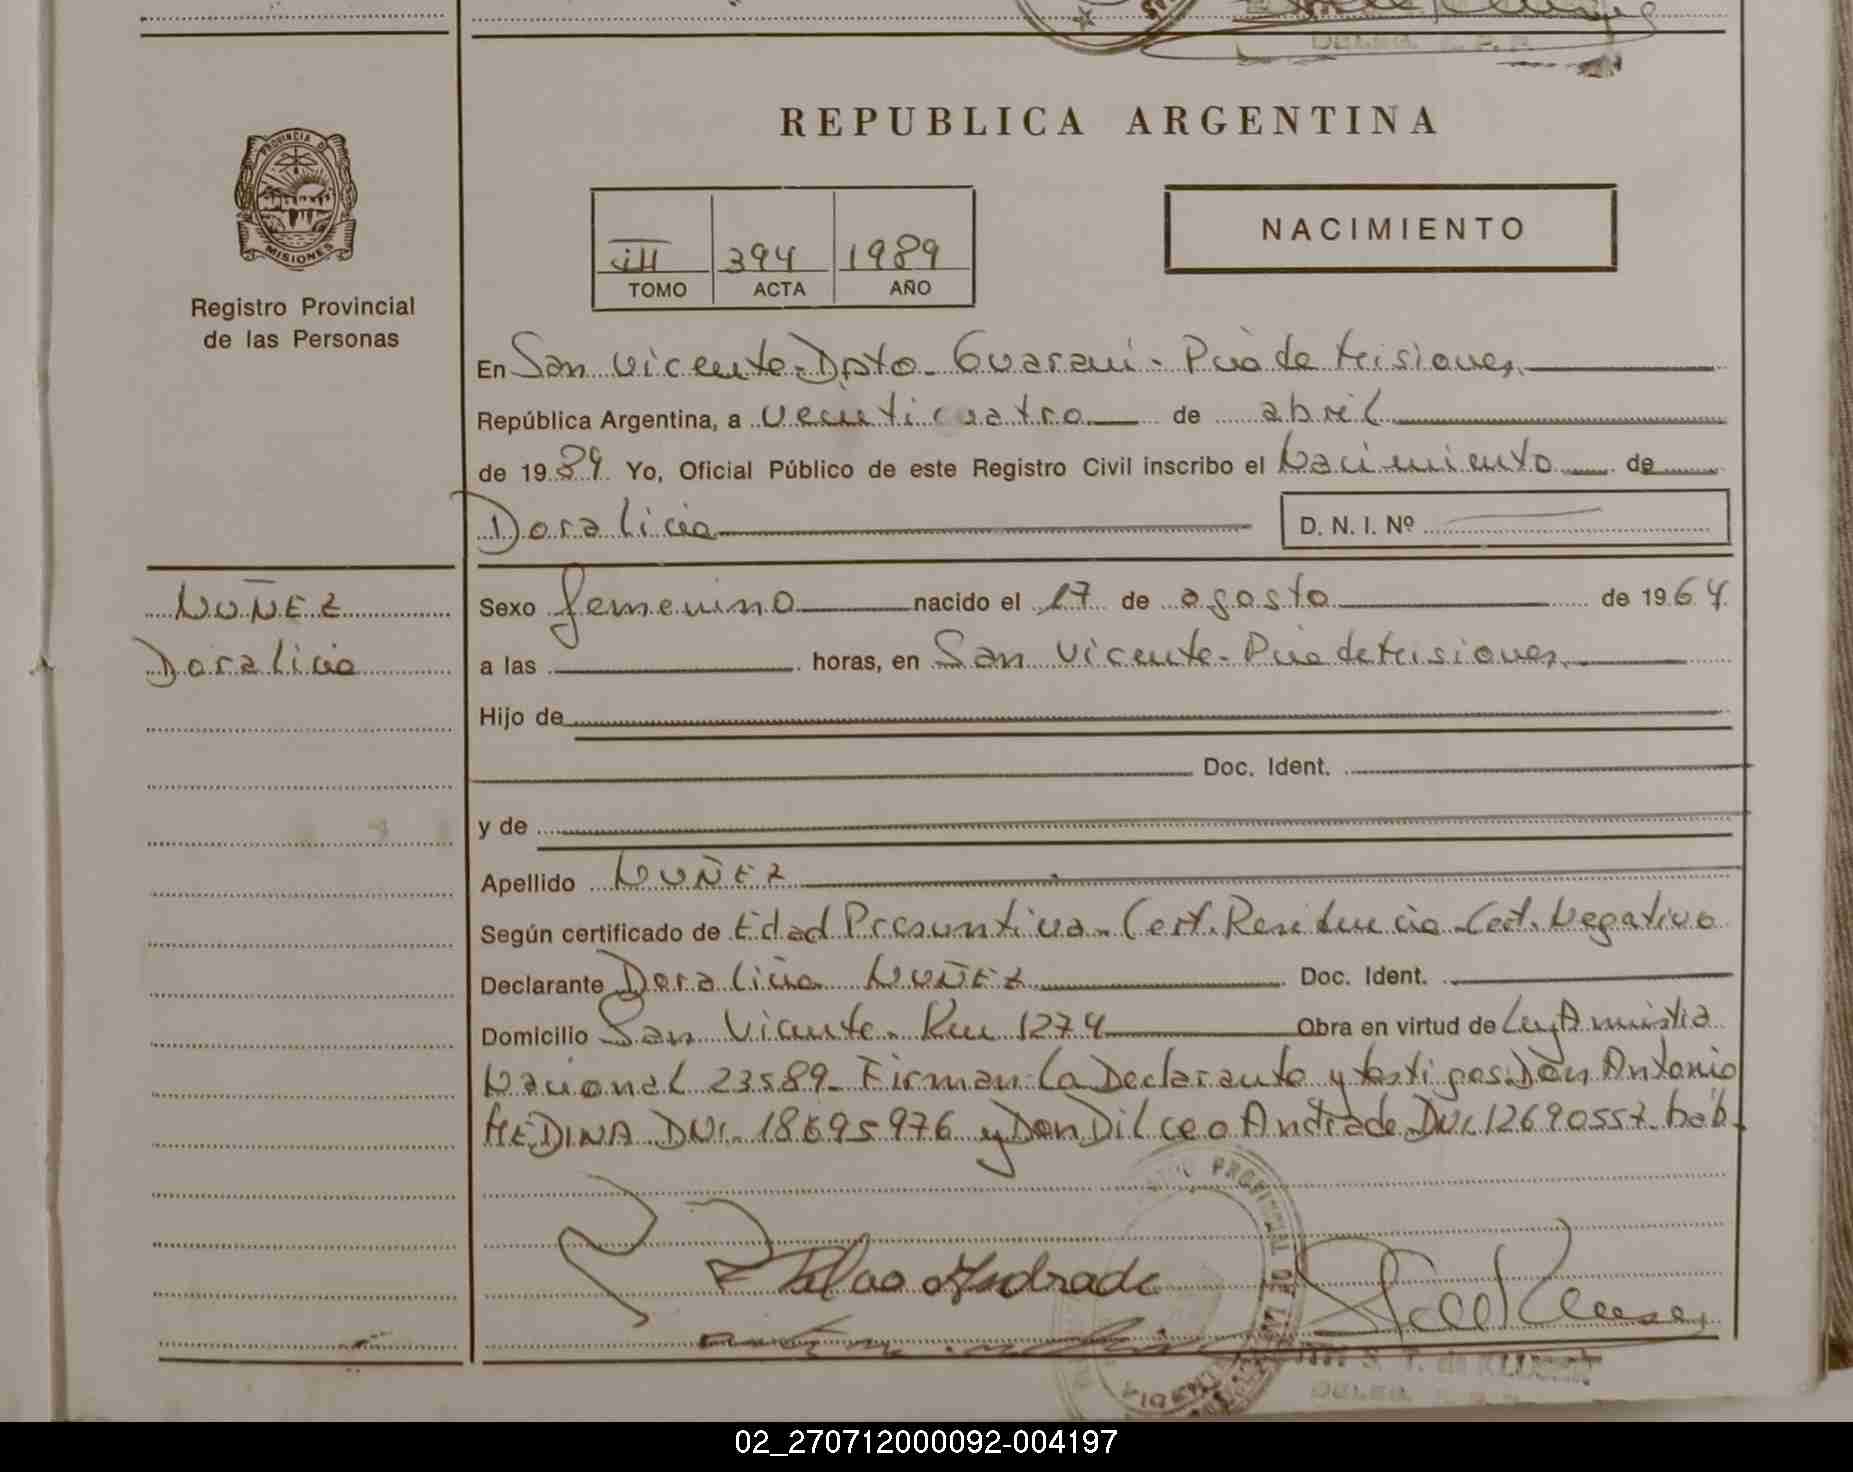 REPUBLICA ARGENTINA
PROVINCIA DE
MISIONES
Registro Provincial
de las Personas
III 394 1989
TOMO ACTA AÑO
NACIMIENTO
En San Vicente - Dpto - Guarani - Pcia de Misiones
República Argentina, a veinticuatro de abril
de 1989. Yo, Oficial Público de este Registro Civil inscribo el Nacimiento de
Doralicia D. N. I. Nº
NUÑEZ
Doralicia
Sexo femenino nacido el 17 de agosto de 1964
a las horas, en San Vicente - Pcia de Misiones
Hijo de
Doc. Ident.
y de
Apellido NUÑEZ
Según certificado de Edad Presuntiva - Cert. Residencia - Cert. Negativo
Declarante Doralicia NUÑEZ Doc. Ident.
Domicilio San Vicente - Km 1274 Obra en virtud de Ley Amnistia
Nacional 23589 - Firman la Declarante y testigos Don Antonio
MEDINA DNI. 18695976 y Don Dilceo Andrade DNI 12690557
Andrade
02_270712000092-004197